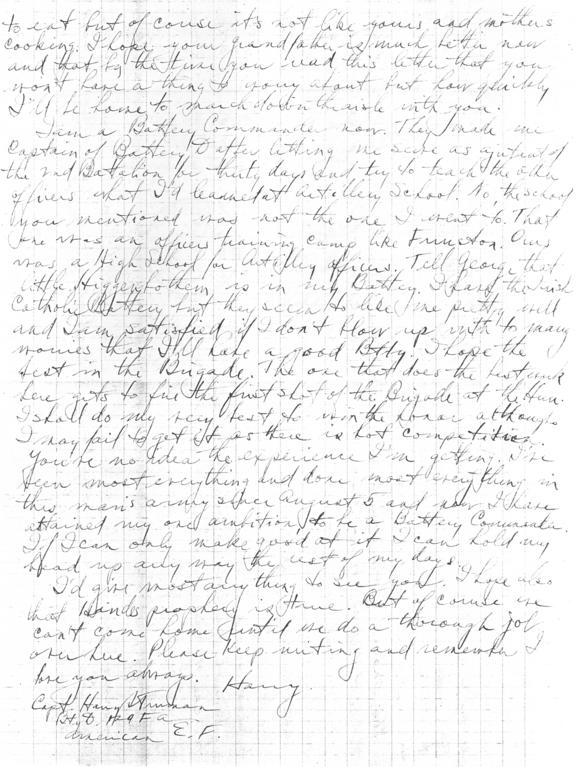 to eat but of couse it's not like yours and mothers
cooking. I hope your grandfather is much better now
and that by the time you read this letter that you
won't have a thing to worry about but how quickly
I'll be home to march down the aisle with you.
I am a Battery Commander now. They made me
Captain of Battery D after letting me serve as adjutant of
the 2nd Battalion for thirty days and try to teach the other
officers what I'd learned at Artillery School. No, the school
you mentioned was not the one I went to. That
one was an officers training camp like Funston. Ours
was a High School for Artillery officers. Tell George that
little Higgenbothem is in my Battery. I have the Irish
Catholic Battery but they seem to like me pretty well
and I am satisfied if I don't blow up with to many
worries that I'll have a good Btty. I hope the
best in the Brigade. The one that does the best work
here gets to fire the first shot of the Brigade at the Hun.
I shall do my very best to win the honor although
I may fail to get it as there is hot competition.
You've no idea the experience I'm getting. I've
seen most everything and done most everything in
this man's army since August 5 and now I have
attained my one ambition to be a Battery Commander.
If I can only make good at it I can hold my
head up any way the rest of my days.
I'd give most anything to see you. I hope also
that prophecy is true. But of couse we
can't come home until we do a thorough job
over here. Please keep writing and remember I
love you always.
Harry.
Capt. Harry Truman
Bty D. 129 F a
American E. F.